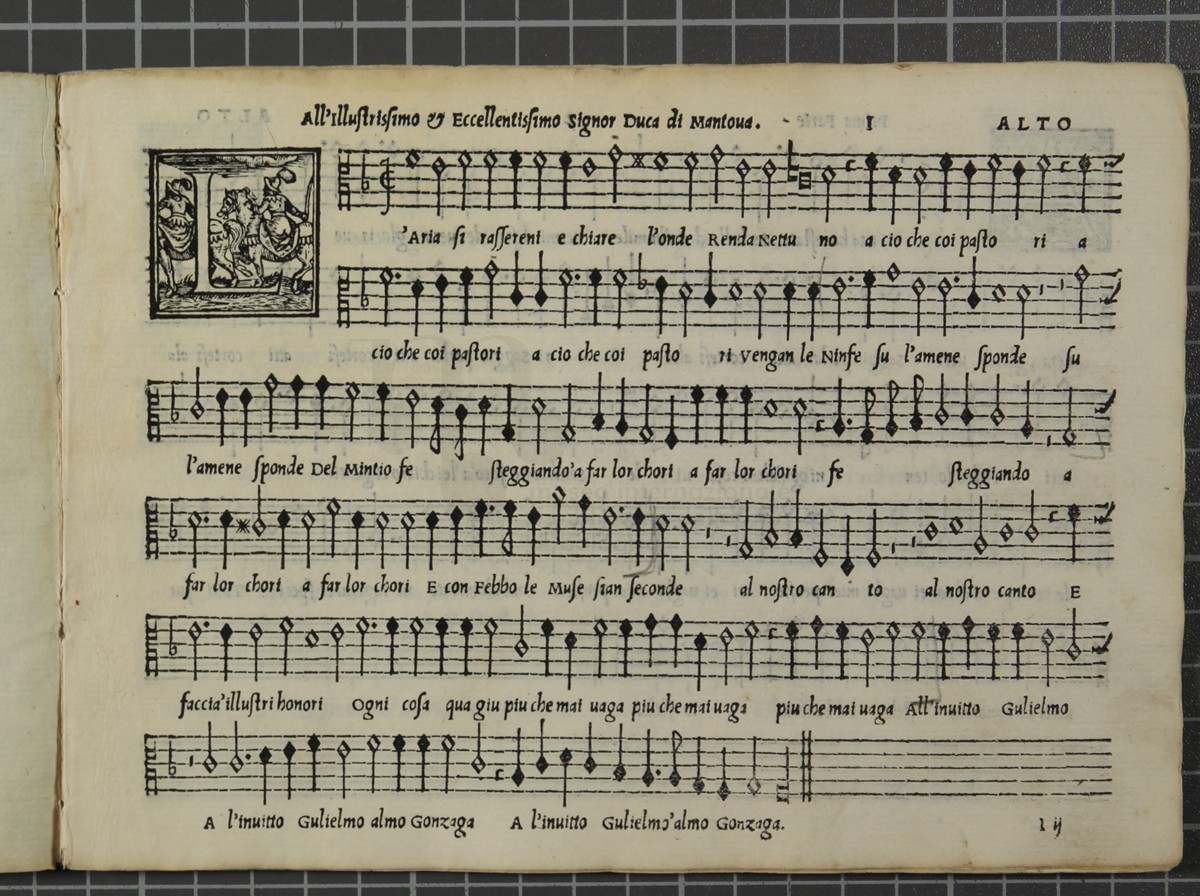 All'Illustrissimo & Eccellentissimo Signor Duca di Mantoua. I ALTO
L
'Aria si rassereni e chiare l'onde Renda Nettu no a cio che coi pasto ri a
cio che coi pastori a cio che coi pasto ri Vengan le Ninfe su l'amene sponde su
l'amene sponde Del Mintio fe steggiando'a far lor chori a far lor chori fe steggiando a
far lor chori a far lor chori E con Febbo le Muse sian seconde al nostro can to al nostro canto E
faccia'illustri honori Ogni cosa qua giu piu che mai uaga piu che mai uaga piu che mai uaga All'inuitto Gulielmo
A l'inuitto Gulielmo almo Gonzaga A l'inuitto Gulielmo'almo Gonzaga.
I ij